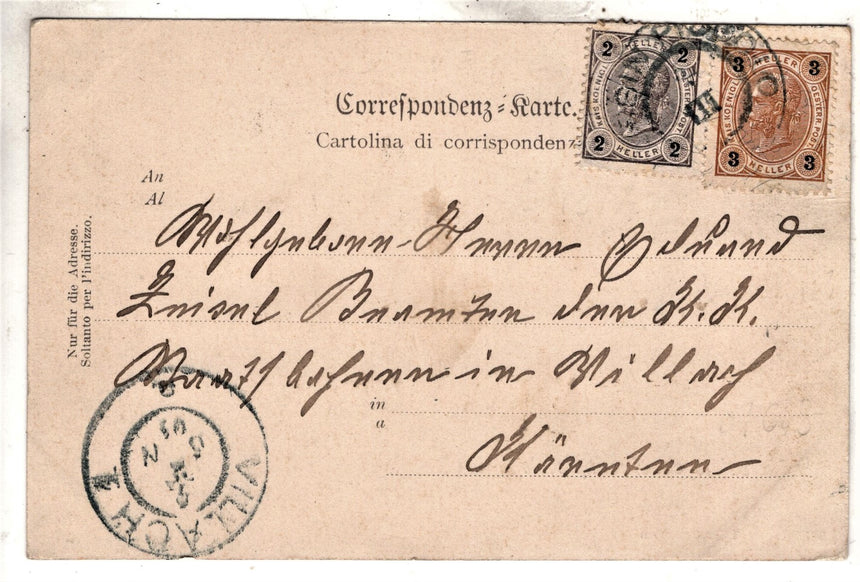 Correspondenz-Karte.
Cartolina di corrispondenz
An
Al
Wohlgeboren Herrn Eduard
Zeisel Beamten der K. K.
Staatsbahnen in Villach
in
a
Kärnten
Nur für die Adresse.
Soltanto per l'indirizzo.
2 HELLER 2
KAIS. KOENIGL. OESTERR. POST
2 HELLER 2
3 HELLER 3
KAIS. KOENIGL. OESTERR. POST
3 HELLER 3
III
VILLACH 1